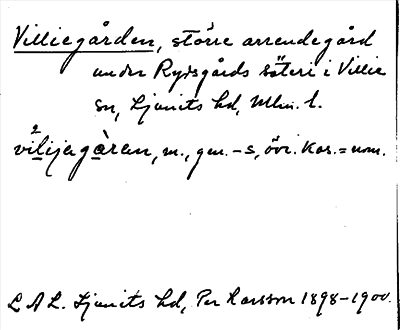 Villiegården, större arrendegård
under Rydsgårds säteri i Villie
sn, Ljunits hd, Mlm. l.
vi²lijagàren, m., gen. -s, övr. kas. = nom.
L A L. Ljunits hd, Per Larsson 1898-1900.